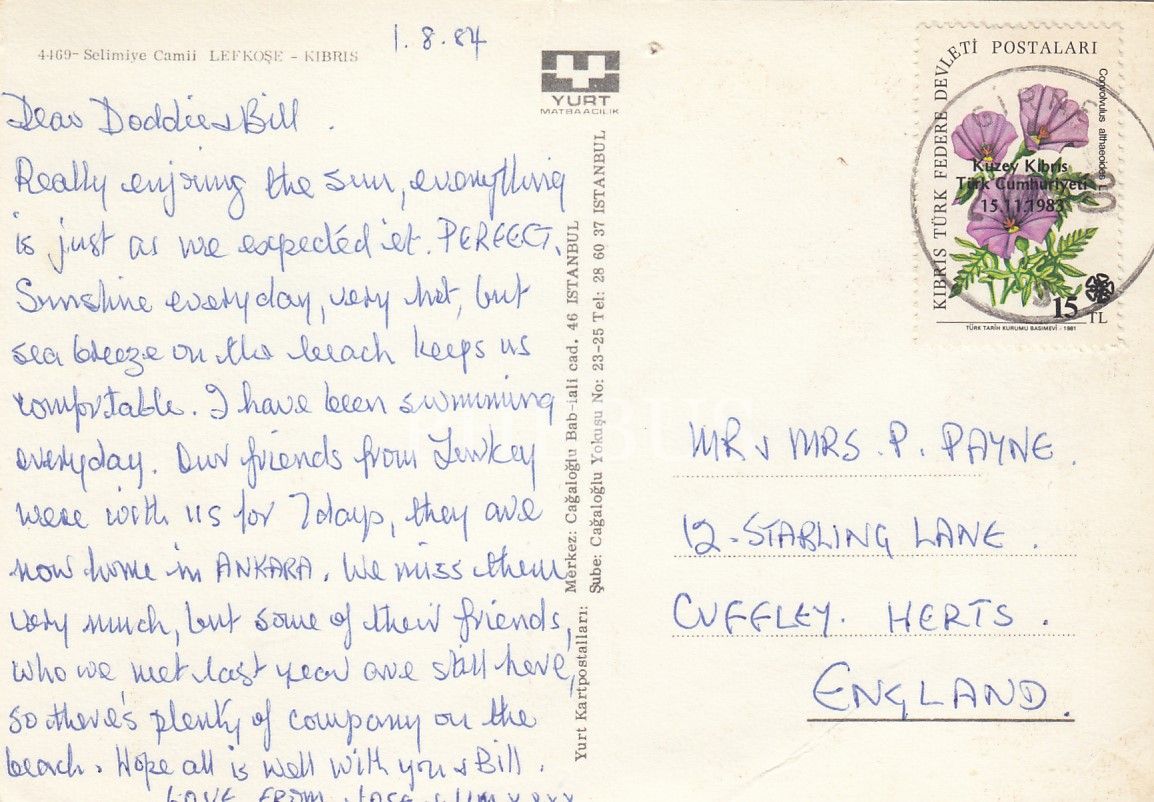 4469- Selimiye Camii LEFKOŞE - KIBRIS
1.8.84
YURT
MATBAACILIK
Dear Doddie & Bill.
Really enjoring the sun, everything
is just as we expected it. PERFECT.
Sunshine everyday, very hot, but
sea breeze on the beach keeps us
comfortable. I have been swimming
everyday. Our friends from Turkey
were with us for 7 days, they are
now home in ANKARA. We miss them
very much, but some of their friends,
who we met last year are still here,
so there's plenty of company on the
beach. Hope all is well with you & Bill.
LOVE FROM
Yurt Kartpostalları: Merkez: Cağaloğlu Bab-iali cad. 46 ISTANBUL
Şube: Cağaloğlu Yokuşu No: 23-25 Tel: 28 60 37 ISTANBUL
KIBRIS TÜRK FEDERE DEVLETİ POSTALARI
Convolvulus althaeoides L.
GIRNE
Kuzey Kıbrıs
Türk Cumhuriyeti
15.11.1983
15 TL
TÜRK TARİH KURUMU BASIMEVİ - 1981
MR & MRS. P. PAYNE.
12. STARLING LANE.
CUFFLEY. HERTS.
ENGLAND.